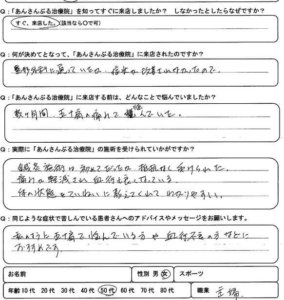 Q：「あんさんぶる治療院」を知ってすぐに来店しましたか？　しなかったとしたらなぜですか？
すぐ、来店した。(該当なら○で可)
Q：何が決めてとなって、「あんさんぶる治療院」に来店されたのですか？
整形外科に通っていたが、症状が改善されなかったので。
Q：「あんさんぶる治療院」に来店する前は、どんなことで悩んでいましたか？
数ヶ月間、五十肩の痛みで悩んでいた。
Q：実際に「あんさんぶる治療院」の施術を受けられていかがですか？
鍼灸施術は初めてだったが抵抗なく受けられた。
痛みが軽減され血行も良くなっている。
体の状態をていねいに教えてくれてわかりやすい。
Q：同じような症状で苦しんでいる患者さんへのアドバイスやメッセージをお願いします。
私のように五十肩で悩んでいる方や血行不良の方などに
おすすめです。
お名前
性別 男 女
スポーツ
年齢 10代 20代 30代 40代 50代 60代 70代 80代
職業 主婦